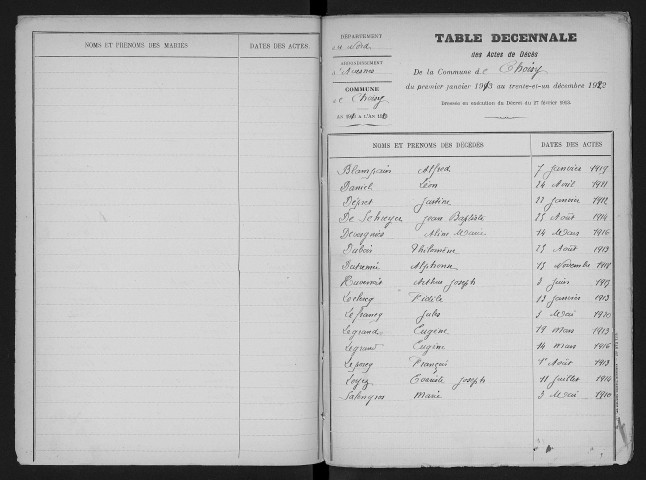 NOMS ET PRÉNOMS DES MARIÉS DATES DES ACTES
DÉPARTEMENT
du Nord
ARRONDISSEMENT
d'Avesnes
COMMUNE
de Choisy
TABLE DECENNALE
des Actes de Décès
De la Commune de Choisy
du premier janvier 1913 au trente-et-un décembre 1922
Dressée en exécution du Décret du 27 février
NOMS ET PRÉNOMS DES DÉCÉDÉS DATES DES ACTES
Blampain Alfred 7 Janvier 1919
Daniel Léon 24 Avril 1921
Dépret Justine 22 Janvier 1912
De Schryer Jean Baptiste 25 Août 1914
Aline Marie 24 Mars 1916
Dubois Philomène 25 Août 1913
Alphonse 15 Novembre 1918
Arthur Joseph 2 Juin
Leclercq Fidèle 13 Janvier 1913
Lefrancq Jules 5 Mai 1920
Legrand Eugène 19 Mars 1913
Legrand Eugène 14 Mars 1916
François 1er Août 1913
Joseph 11 Juillet 1914
Salengros Marie 3 Mai 1920